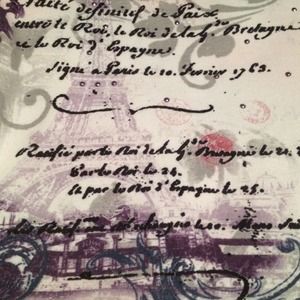 Traité définitif de Paix
entre le Roi, le Roi de la G. Bretagne
et le Roi d'Espagne.
Signé a Paris le 10. Fevrier 1763.
Ratifié par le Roi de la G. Bretagne le 21.
Par le Roi le 24.
Et par le Roi d'Espagne le 25.
le 10. Mars